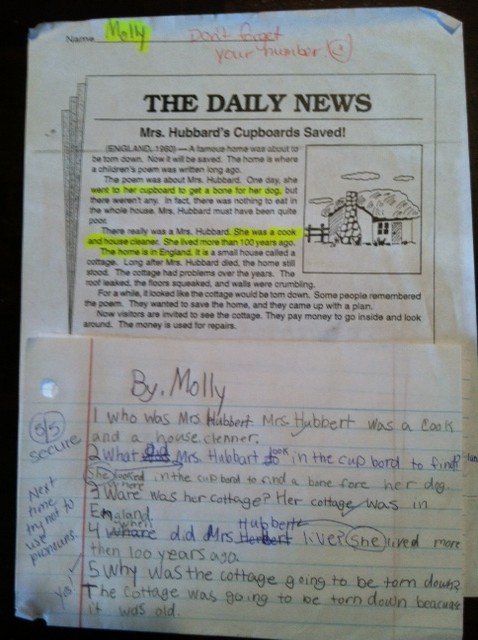 Name Molly
Don't forget
your number
THE DAILY NEWS
Mrs. Hubbard's Cupboards Saved!
(ENGLAND, 1980) — A famous home was about to
be torn down. Now it will be saved. The home is where
a children's poem was written long ago.
The poem was about Mrs. Hubbard. One day, she
went to her cupboard to get a bone for her dog, but
there weren't any. In fact, there was nothing to eat in
the whole house. Mrs. Hubbard must have been quite
poor.
There really was a Mrs. Hubbard. She was a cook
and house cleaner. She lived more than 100 years ago.
The home is in England. It is a small house called a
cottage. Long after Mrs. Hubbard died, the home still
stood. The cottage had problems over the years. The
roof leaked, the floors squeaked, and walls were crumbling.
For a while, it looked like the cottage would be torn down. Some people remembered
the poem. They wanted to save the home, and they came up with a plan.
Now visitors are invited to see the cottage. They pay money to go inside and look
around. The money is used for repairs.
By. Molly
5/5
secure
Next
time,
try not to
use
pronouns.
Yes!
1 who was Mrs Hubbert Mrs Hubbert was a cook
and a house clenner.
2 What did Mrs Hubbart look in the cup bord to find?
She looked in the cup bord to find a bone fore her dog.
3 Ware was her cottage? Her cottage was in
England
4 when did Mrs Hubbert live? she lived more
then 100 years ago.
5 Why was the cottage going to be torn down?
The cottage was going to be torn down beacuse
it was old.